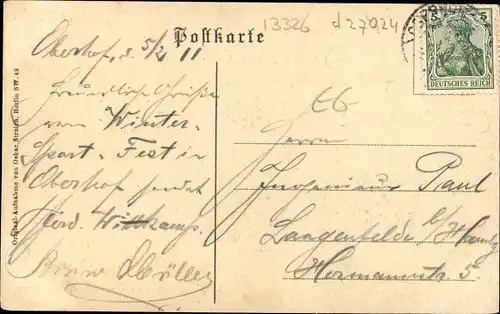 13326 d27924
Postkarte
5 5
DEUTSCHES REICH
Oberhof, d. 5/2 11
Freundliche Grüße
vom Winter-
Sport-Fest in
Oberhof sendet
Ferd. Wittkamp.
Bruno Müller
Herrn
Ingenieur Paul
Langenfelde b/Hambg
Hermannstr. 5.
Original-Aufnahme von Oskar Strauch, Berlin SW. 48